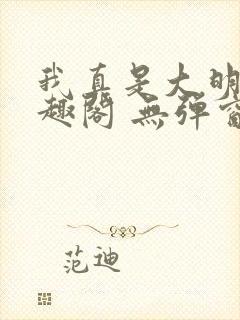 我真是大明
趣阁 無弹窗
范迪